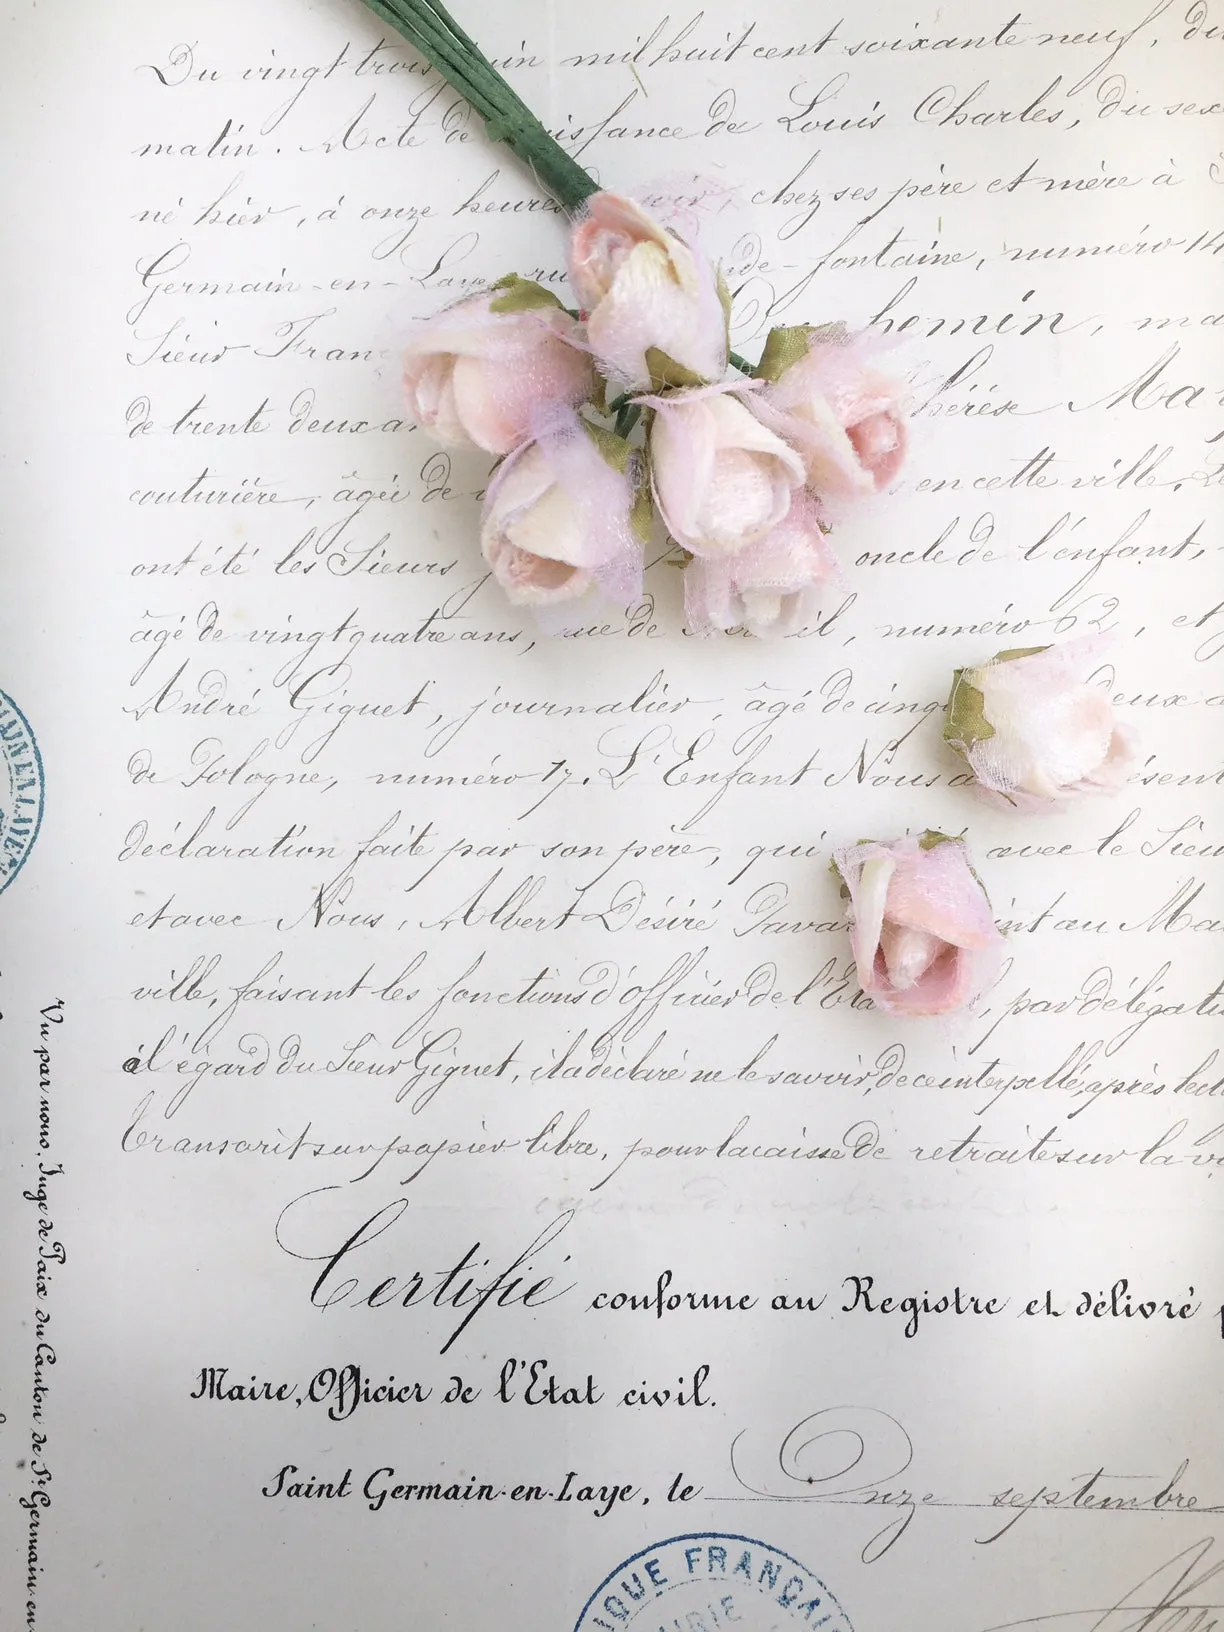 Du vingt trois juin mil huit cent soixante neuf, du
matin. Acte de naissance de Louis Charles, du sexe
né hier, à onze heures du soir, chez ses père et mère à
Germain-en-Laye, rue fontaine, numéro 14
Sieur Fran homin, ma
de trente deux an hérèse Ma
couturière, âgée de en cette ville. Le
ont été les Sieurs oncle de l'enfant,
âgé de vingt quatre ans, rue de numéro 62, et
André Giguet, journalier, âgé de cinq deux a
de Pologne, numéro 17. L'Enfant Nous a ésent
déclaration faite par son père, qui avec le Sieu
et avec Nous, Albert Désiré Tava int au Ma
ville, faisant les fonctions d'officier de l'Eta l, par délégati
à l'égard du Sieur Giguet, il a déclaré ne le savoir, de ce interpellé, après lect
Transcrit sur papier libre, pour la caisse de retraite sur la vi
Certifié conforme au Registre et délivré p
Maire, Officier de l'Etat civil.
Saint Germain-en-Laye, le Onze septembre
QUE FRANÇAI
IRIE
MAIN EN LAYE
Vu par nous, Juge de Paix du Canton de St Germain-en